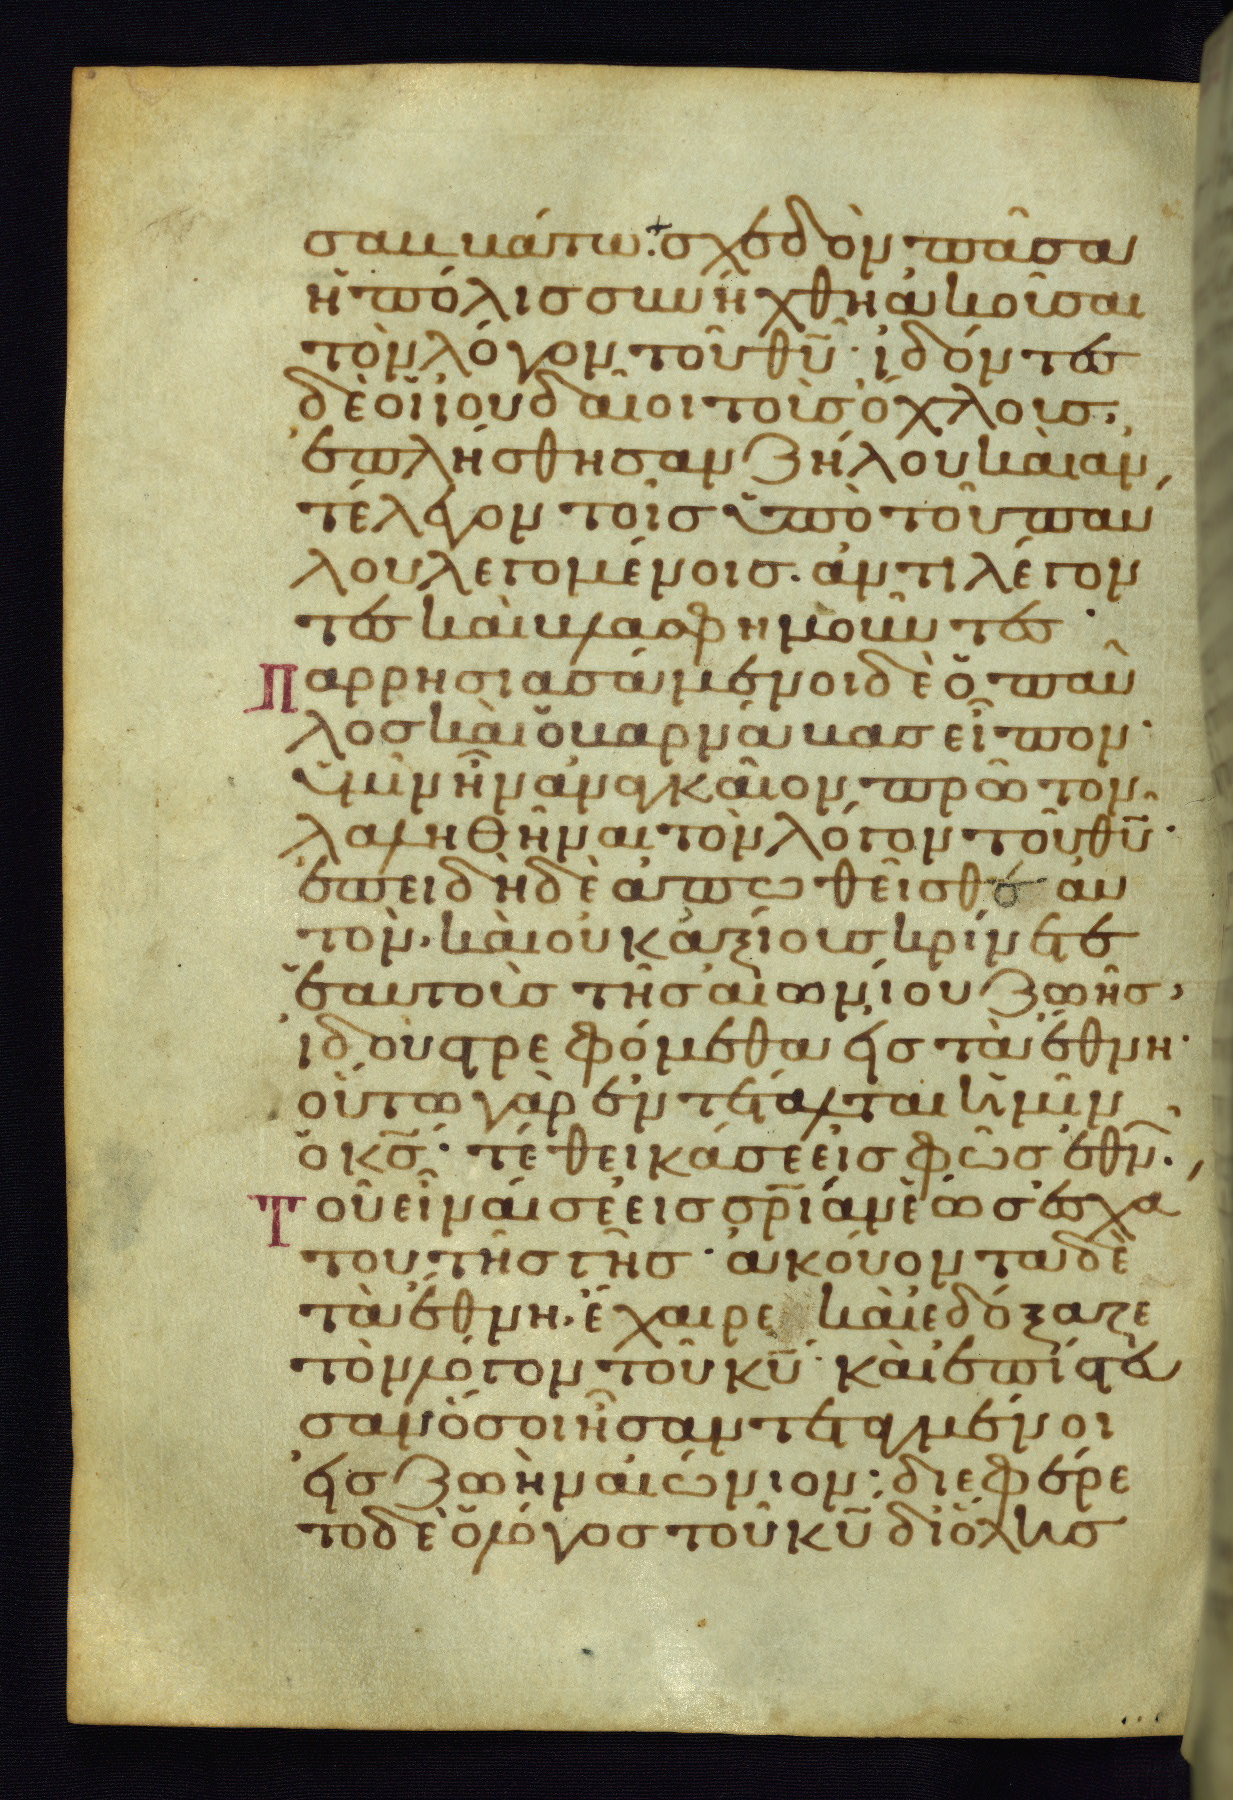 σαββάτω· σχεδὸν πᾶσα
ἡ πόλις συνήχθη ἀκοῦσαι
τὸν λόγον τοῦ θ̅υ̅· ἰδόντες
δὲ οἱ ἰουδαῖοι τοὺς ὄχλους,
ἐπλήσθησαν ζήλου καὶ ἀν
τέλεγον τοῖς ὑπὸ τοῦ παυ
λου λεγομένοις. ἀντιλέγον
τες καὶ βλασφημοῦντες·
Παρρησιασάμενοι δὲ ὁ παῦ
λος καὶ ὁ βαρνάβας εἶπον·
ὑμῖν ἦν ἀναγκαῖον πρῶτον
λαληθῆναι τὸν λόγον τοῦ θ̅υ̅·
ἐπειδὴ δὲ ἀπωθεῖσθε αὐ
τὸν, καὶ οὐκ ἀξίους κρίνετε
ἑαυτοὺς τῆς αἰωνίου ζωῆς,
ἰδοὺ στρεφόμεθα εἰς τὰ ἔθνη·
οὕτω γὰρ ἐντέταλται ἡμῖν
ὁ κ̅ς̅· τέθεικά σε εἰς φῶς ἐθν̅.
Τοῦ εἶναί σε εἰς σ̅ρ̅ίαν ἕως ἐσχα
του τῆς γῆς· ἀκούοντα δὲ
τὰ ἔθνη. ἔχαιρε καὶ ἐδόξαζε
τὸν λόγον τοῦ κ̅υ̅· καὶ ἐπίστευ
σαν ὅσοι ἦσαν τεταγμένοι
εἰς ζωὴν αἰώνιον· διεφέρε
το δὲ ὁ λόγος τοῦ κ̅υ̅ δι ὅλης